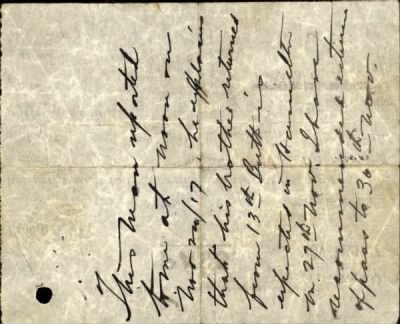 This man reported
to me at noon on
Nov 24/17. he explains
that his brother returned
from 13th Battn is
expected in Hamilton
on 27th Nov. I have
recommended extension
of pass to 30th Nov.